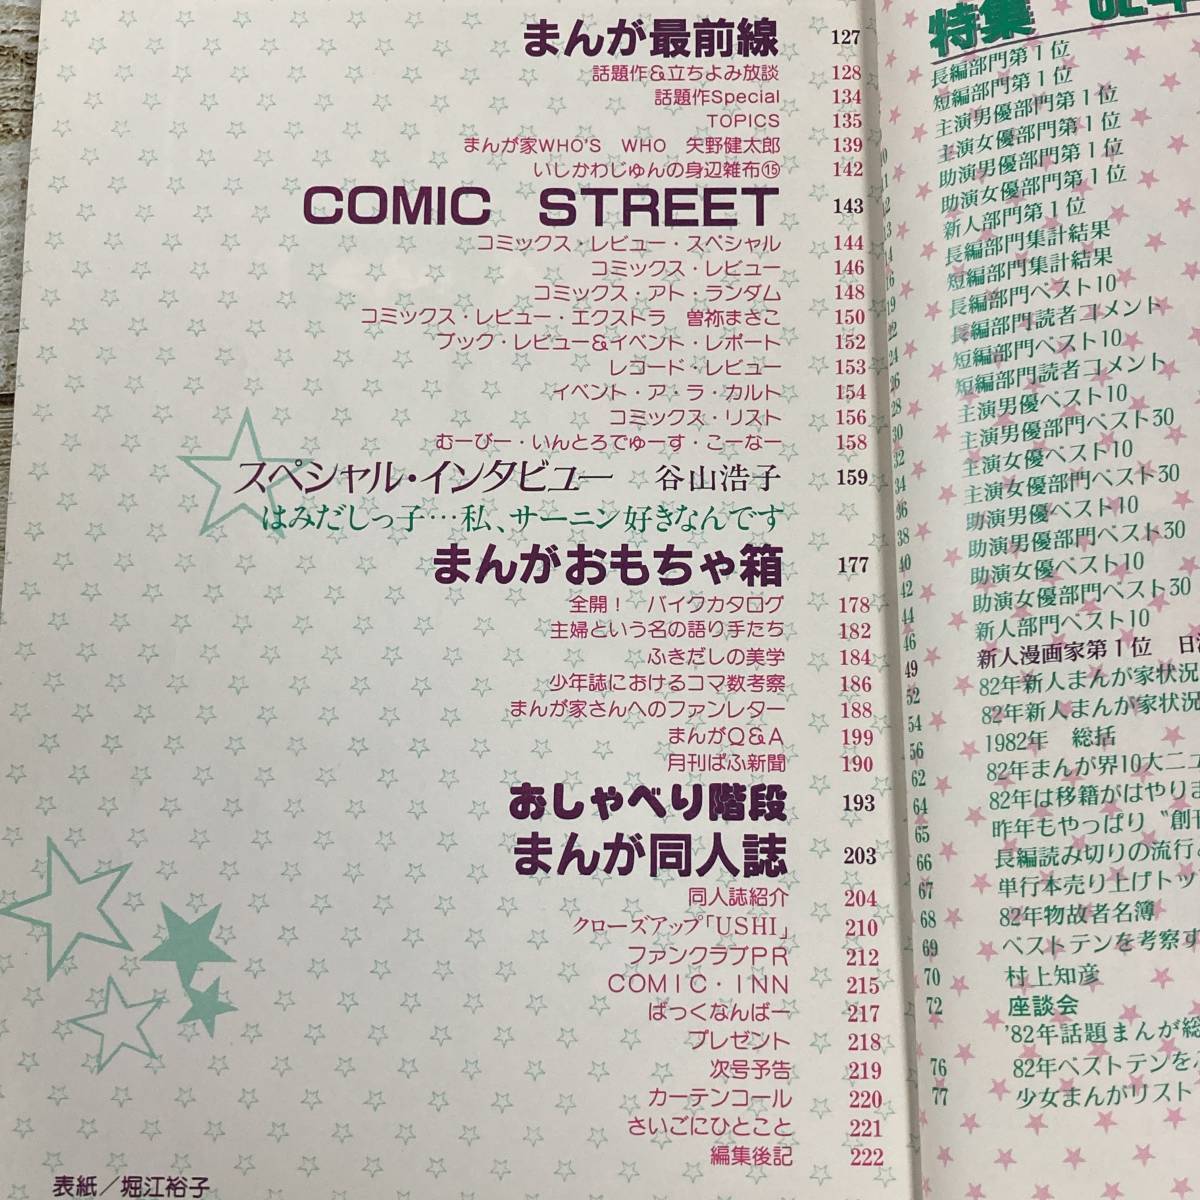 まんが最前線 127
話題作&立ちよみ放談 128
話題作Special 134
TOPICS 135
まんが家WHO'S WHO 矢野健太郎 139
いしかわじゅんの身辺雑布⑮ 142
COMIC STREET 143
コミックス・レビュー・スペシャル 144
コミックス・レビュー 146
コミックス・アト・ランダム 148
コミックス・レビュー・エクストラ 曽祢まさこ 150
ブック・レビュー&イベント・レポート 152
レコード・レビュー 153
イベント・ア・ラ・カルト 154
コミックス・リスト 156
むーびー・いんとろでゅーす・こーなー 158
スペシャル・インタビュー 谷山浩子 159
はみだしっ子…私、サーニン好きなんです
まんがおもちゃ箱 177
全開! バイクカタログ 178
主婦という名の語り手たち 182
ふきだしの美学 184
少年誌におけるコマ数考察 186
まんが家さんへのファンレター 188
まんがQ&A 199
月刊ぱふ新聞 190
おしゃべり階段 193
まんが同人誌 203
同人誌紹介 204
クローズアップ「USHI」 210
ファンクラブPR 212
COMIC・INN 215
ばっくなんばー 217
プレゼント 218
次号予告 219
カーテンコール 220
さいごにひとこと 221
編集後記 222
表紙/堀江裕子
特集
長編部門第1位
短編部門第1位
主演男優部門第1位
主演女優部門第1位
助演男優部門第1位
助演女優部門第1位
新人部門第1位
長編部門集計結果
短編部門集計結果
長編部門ベスト10
長編部門読者コメント
短編部門ベスト10
短編部門読者コメント
28 主演男優ベスト10
30 主演男優部門ベスト30
32 主演女優ベスト10
34 主演女優部門ベスト30
36 助演男優ベスト10
38 助演男優部門ベスト30
40 助演女優ベスト10
42 助演女優部門ベスト30
44 新人部門ベスト10
46 新人漫画家第1位
49 82年新人まんが家状況
52 82年新人まんが家状況
54 1982年 総括
56 82年まんが界10大ニュ
62 82年は移籍がはやりま
64 昨年もやっぱり〝創刊
65 長編読み切りの流行と
66 単行本売り上げトップ
67 82年物故者名簿
68 ベストテンを考察す
69 村上知彦
70 座談会
72 '82年話題まんが総
76 82年ベストテンを
77 少女まんがリスト